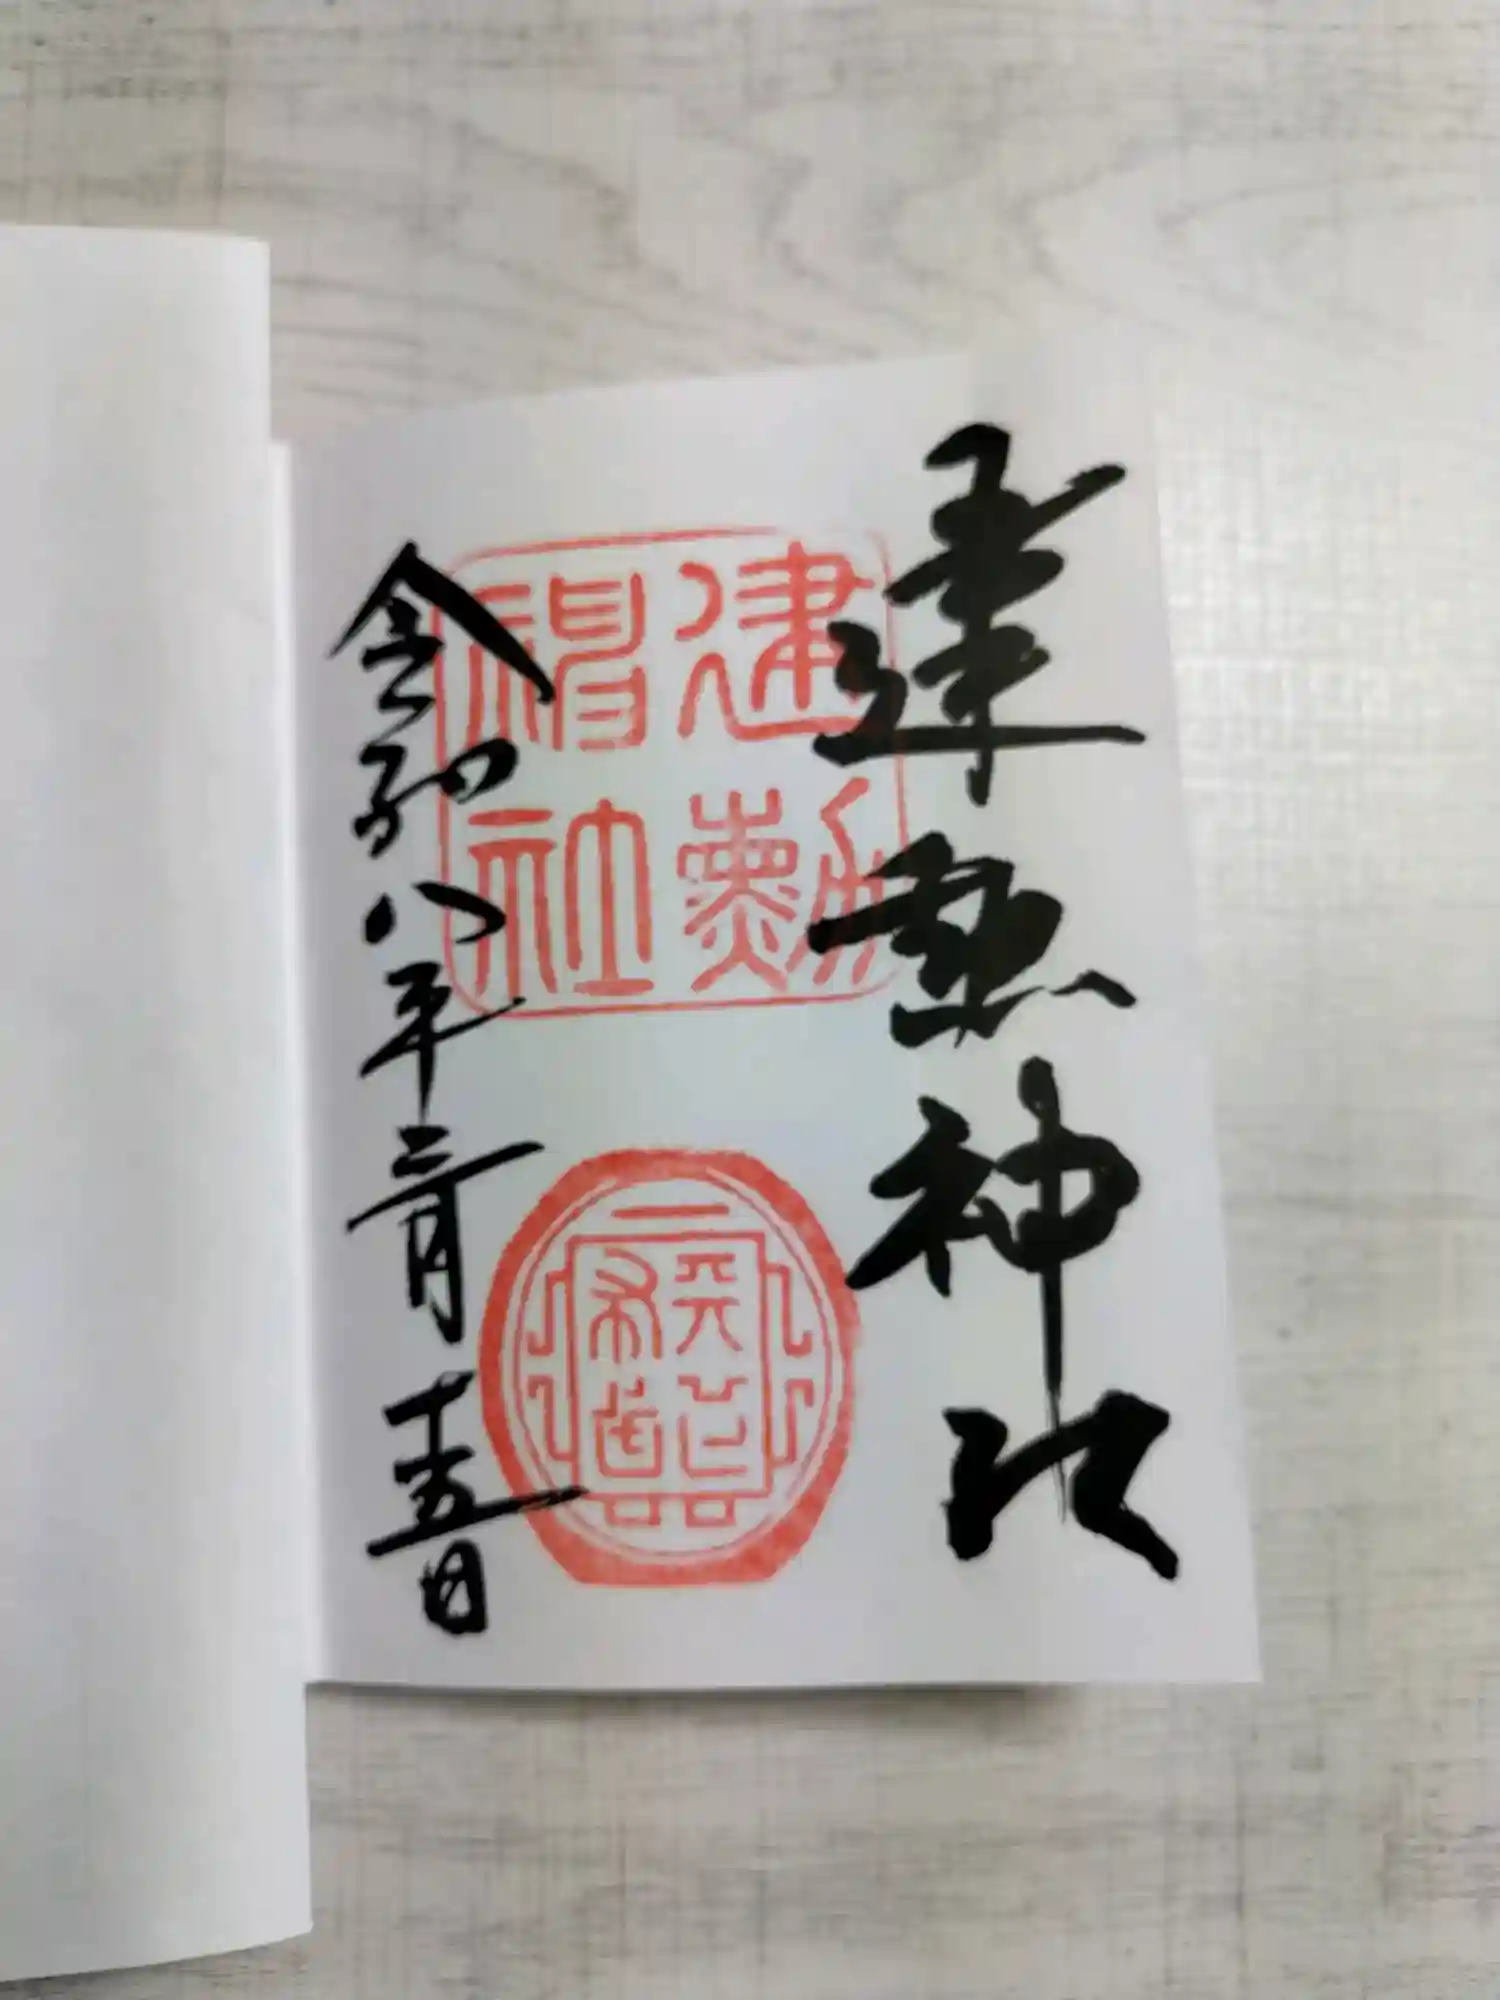 建勲神社
建勲
神社
天下
布武
令和八年三月十五日